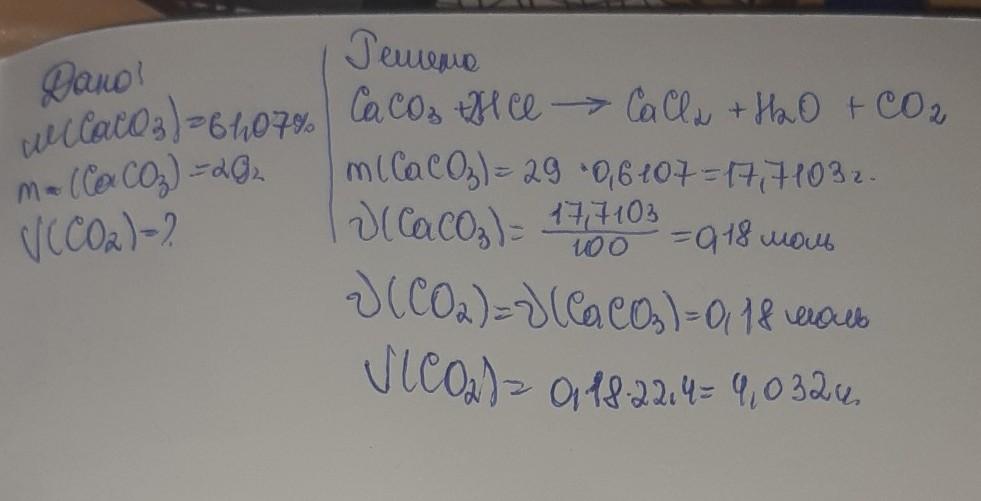 Дано:
ω(CaCO3)=61,07%
m(CaCO3)=29г
V(CO2)=?
Решение
CaCO3 +2HCl → CaCl2 + H2O + CO2
m(CaCO3)= 29 · 0,6107=17,7103г.
ν(CaCO3)= 17,7103/100 =0,18 моль
ν(CO2)=ν(CaCO3)=0,18 моль
V(CO2)= 0,18·22,4= 4,032л.